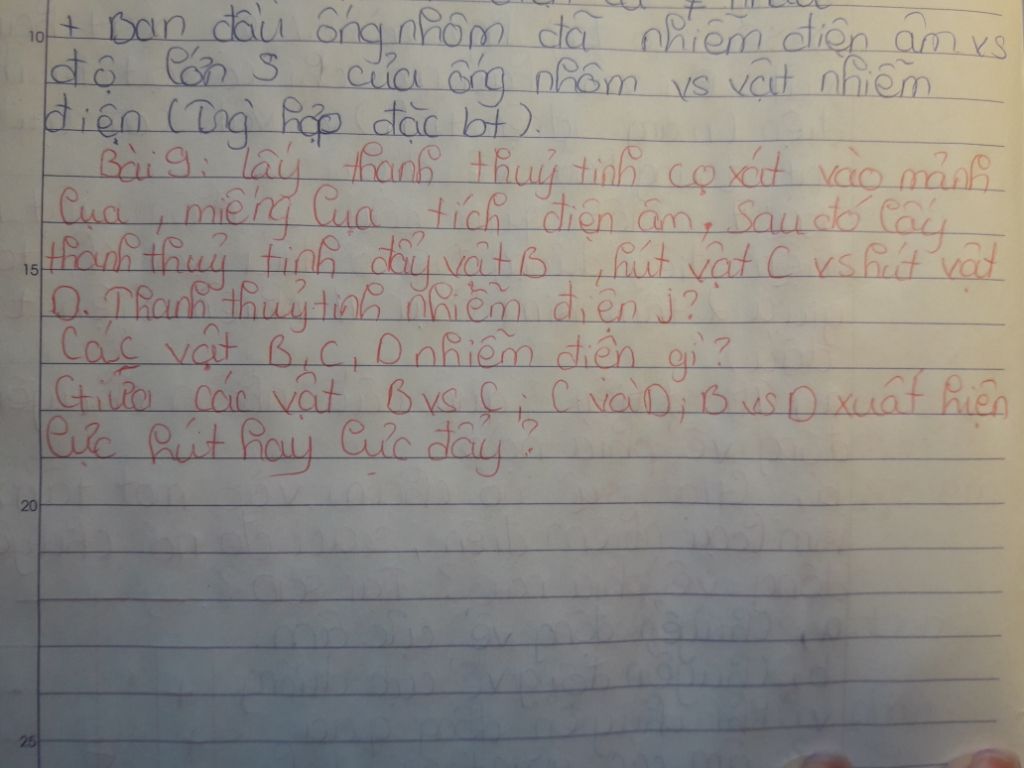 10 + Ban đầu ống nhôm đã nhiễm điện âm vs
độ lớn S của ống nhôm vs vật nhiễm
điện (Trg hợp đặc bt).
Bài 9: lấy thanh thuỷ tinh cọ xát vào mảnh
lụa, miếng lụa tích điện âm. Sau đó lấy
15 thanh thuỷ tinh đẩy vật B, hút vật C vs hút vật
D. Thanh thuỷ tinh nhiễm điện j?
Các vật B, C, D nhiễm điện gì?
Giữa các vật B vs C; C và D; B vs D xuất hiện
lực hút hay lực đẩy?
20
25